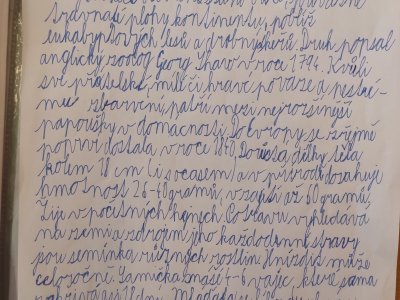 trávnaté plochy kontinentu, poblíž
eukalyptových lesů a drobných keřů. Druh popsal
anglický zoolog Georg Shaw v roce 1794. Kvůli
své přátelské, milé či hravé povaze a pestré-
mu zbarvení, patří mezi nejrozšířenější
papoušky v domácnosti. Do Evropy se zřejmě
poprvé dostala v roce 1840. Dorůstá délky těla
kolem 18 cm (i s ocasem) a v přírodě dosahuje
hmotnost 26-40 gramů, v zajetí až 60 gramů.
Žijí v početných hejnech. Potravu vyhledává
na zemi a zdrojem jeho každodenní stravy
jsou semínka různých rostlin. Hnízdit může
celoročně. Samička snáší 4-6 vajec, které sama